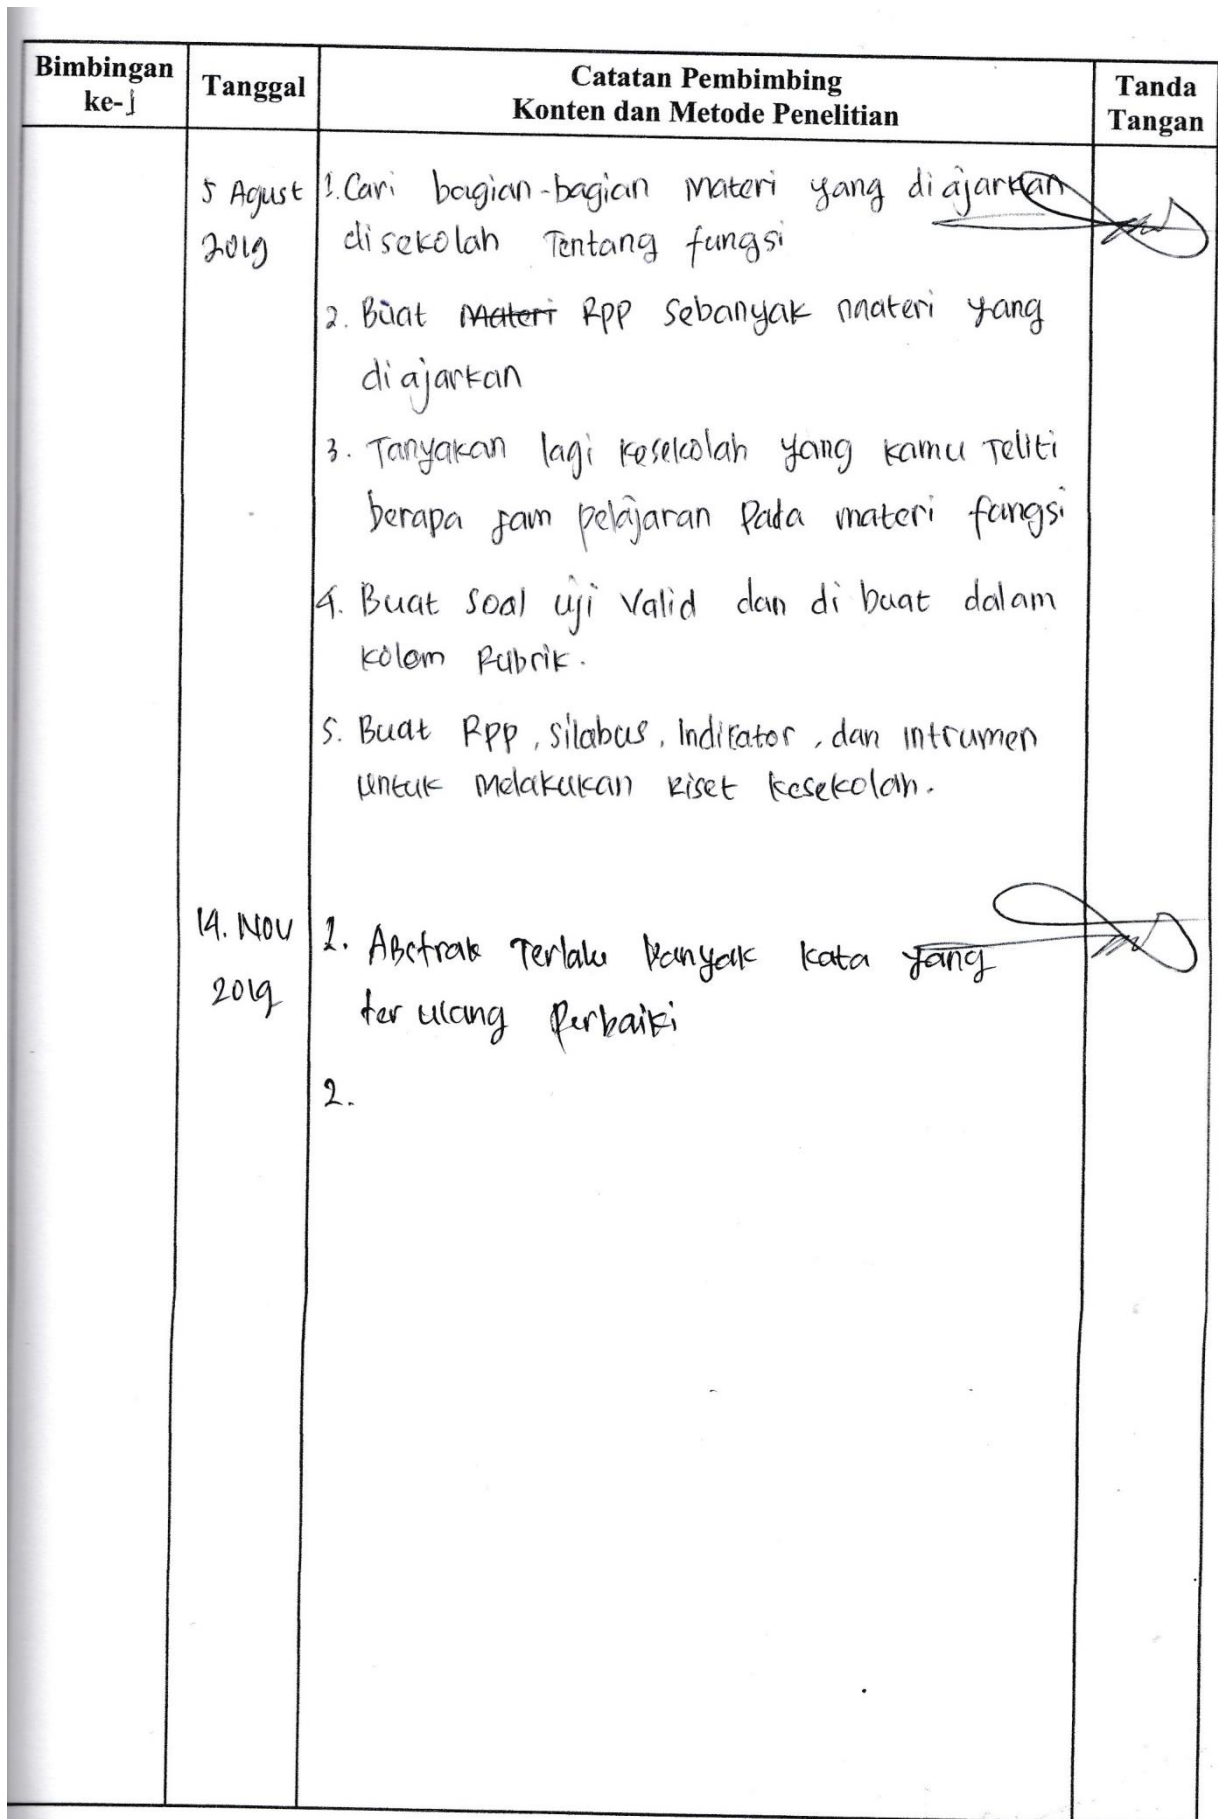 Bimbingan ke-1
Tanggal
Catatan Pembimbing
Konten dan Metode Penelitian
Tanda Tangan
5 Agust 2019
1. Cari bagian-bagian materi yang diajarkan
disekolah Tentang fungsi
2. Buat Materi RPP Sebanyak materi yang
diajarkan
3. Tanyakan lagi kesekolah yang kamu Teliti
berapa jam pelajaran Pada materi fungsi
4. Buat soal uji Valid dan di buat dalam
kolom Rubrik.
5. Buat RPP, silabus, Indikator, dan intrumen
untuk melakukan Riset kesekolah.
14. Nov 2019
1. Abstrak Terlalu banyak kata yang
ter ulang Perbaiki
2.